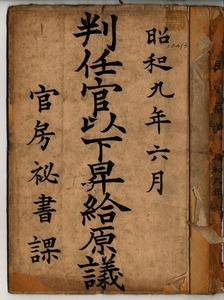 昭和九年六月
判任官以下昇給原議
官房祕書課